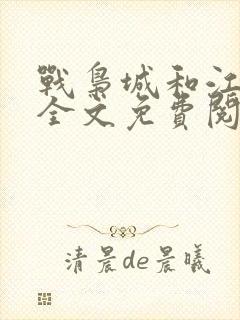 戰梟城和江
全文免費閱
清晨de晨曦